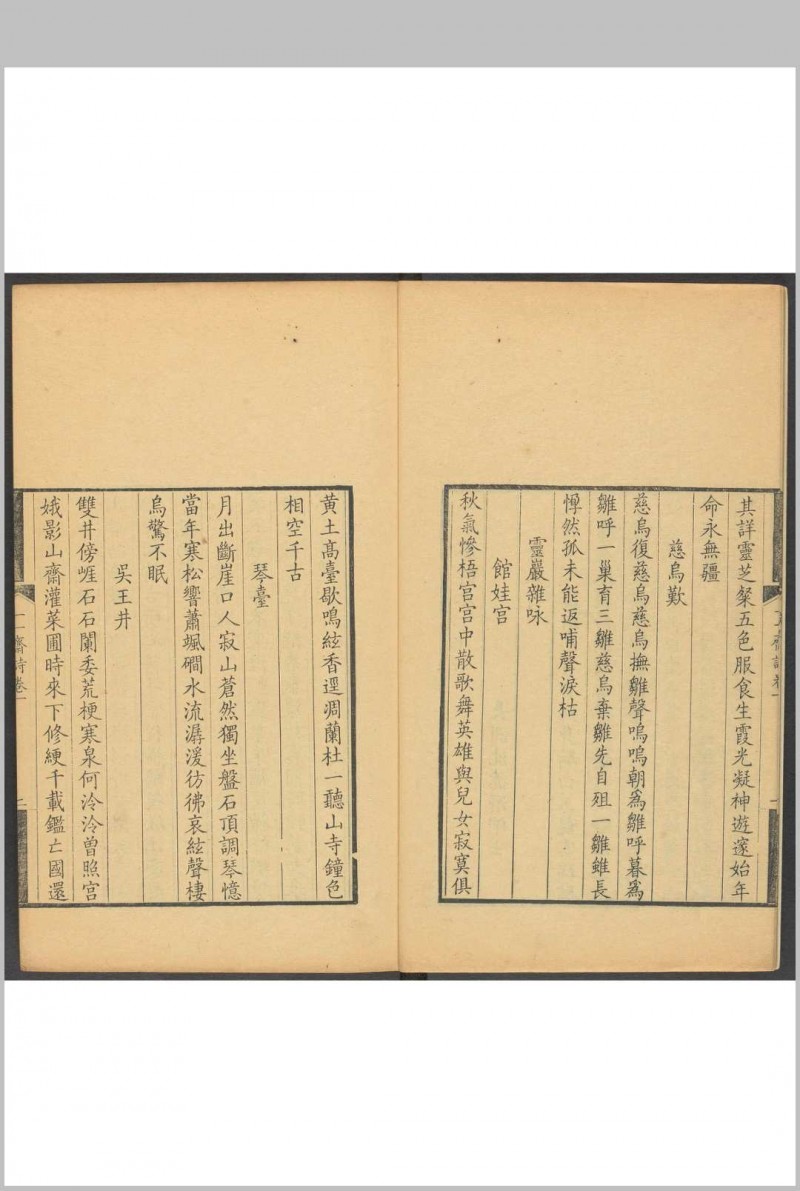 其詳靈芝粲五色服食生霞光凝神遊邃始年
命永無疆
慈烏歎
慈烏復慈烏慈烏撫雛聲嗚嗚朝為雛呼暮為
雛呼一巢育三雛慈烏棄雛先自殂一雛雖長
惸然孤未能返哺聲淚枯
靈巖雜咏
館娃宮
秋氣慘梧宮宮中散歌舞英雄與兒女寂寞俱
黃土高臺歇鳴絃香逕凋蘭杜一聽山寺鐘色
相空千古
琴臺
月出斷崖口人寂山蒼然獨坐盤石頂調琴憶
當年寒松響蕭颯磵水流潺湲彷彿哀絃聲棲
烏驚不眠
吳王井
雙井傍崕石石闌委荒梗寒泉何泠泠曾照宮
娥影山齋灌菜圃時來下修綆千載鑑亡國還
齋詩卷一
二